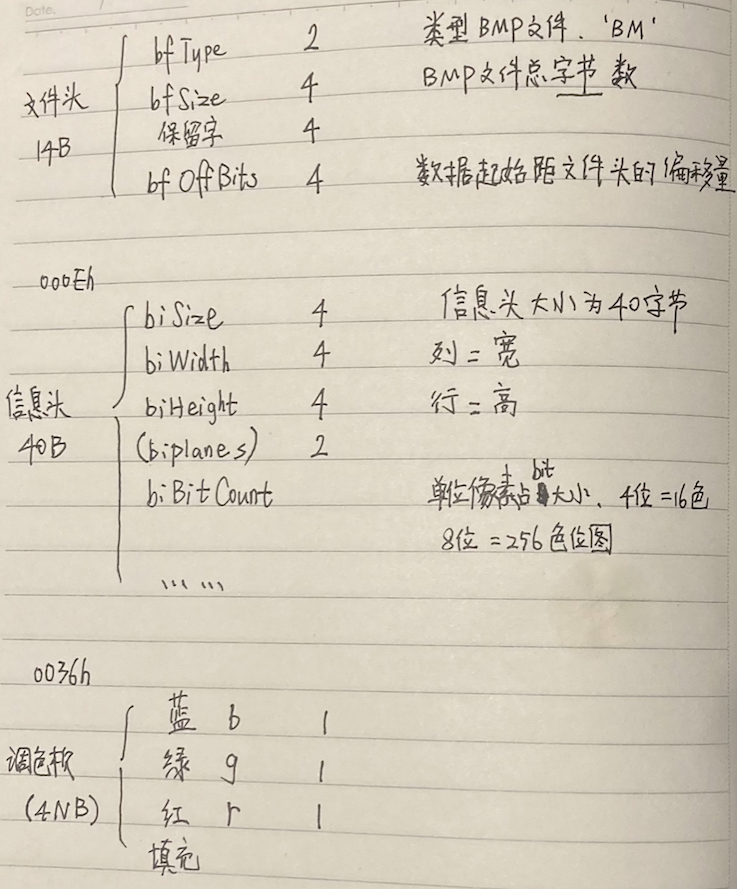 Date.
bfType 2 类型BMP文件. 'BM'
文件头 bfSize 4 BMP文件总字节数
保留字 4
14B
bfOffBits 4 数据起始距文件头的偏移量
000Eh
biSize 4 信息头大小为40字节
biWidth 4 列=宽
信息头 biHeight 4 行=高
40B (biplanes) 2
biBitCount 单位像素点bit大小、4位=16色
8位=256色位图
……
0036h
蓝 b 1
调色板 绿 g 1
(4NB) 红 r 1
填充